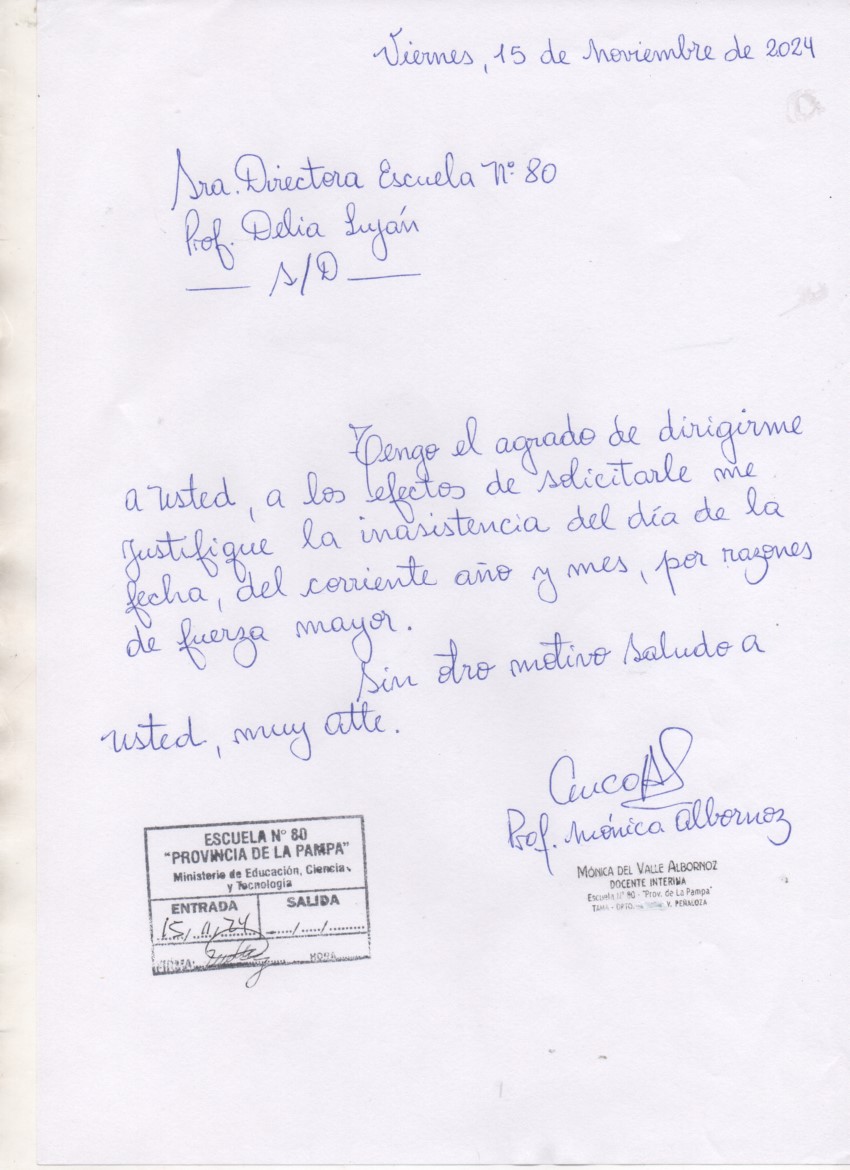 Viernes, 15 de Noviembre de 2024
Sra. Directora Escuela N° 80
Prof. Delia Luján
S/D
Tengo el agrado de dirigirme
a usted, a los efectos de solicitarle me
justifique la inasistencia del día de la
fecha, del corriente año y mes, por razones
de fuerza mayor.
Sin otro motivo saludo a
usted, muy atte.
Prof. Mónica Albornoz
MÓNICA DEL VALLE ALBORNOZ
DOCENTE INTERINA
Escuela N° 80 - "Prov. de La Pampa"
TAMA - DPTO. V. PEÑALOZA
ESCUELA N° 80
"PROVINCIA DE LA PAMPA"
Ministerio de Educación, Ciencia
y Tecnología
ENTRADA SALIDA
15/11/24 ...../...../.........
FIRMA: HORA